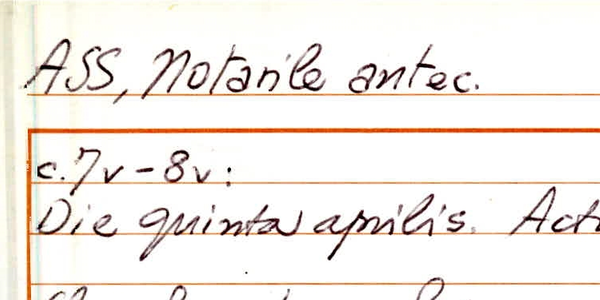 ASS, Notarile antec.
c. 7v-8v:
Die quinta aprilis. Act